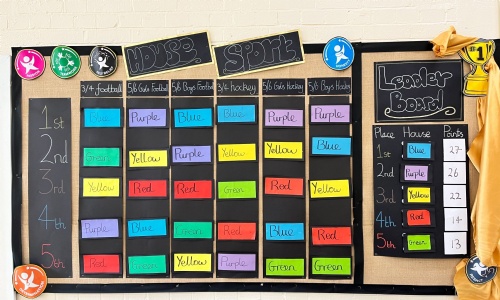 House Sport
3/4 football 5/6 Girls Football 5/6 Boys Football 3/4 hockey 5/6 Girls Hockey 5/6 Boys Hockey
1st Blue Purple Blue Blue Purple Purple
2nd Green Yellow Purple Yellow Yellow Blue
3rd Yellow Red Red Green Red Yellow
4th Purple Blue Green Red Blue Red
5th Red Green Yellow Purple Green Green
#1
Leader
Board
Place House Points
1st Blue 27
2nd Purple 26
3rd Yellow 22
4th Red 14
5th Green 13